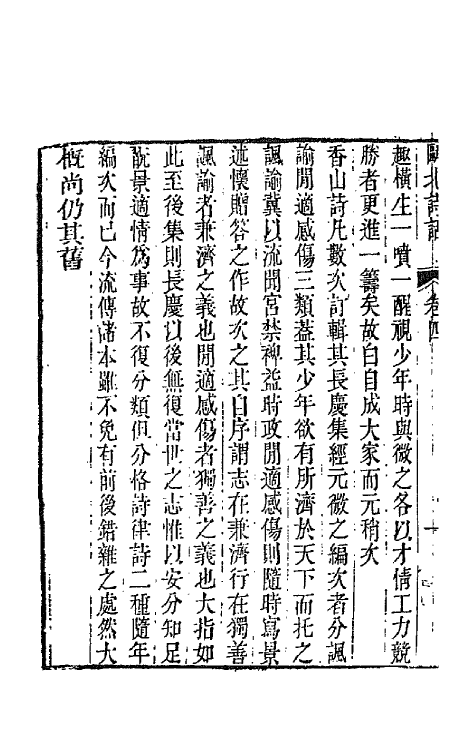 甌北詩話 卷四
趣橫生一噴一醒視少年時與微之各以才情工力競
勝者更進一籌矣故白自成大家而元稍次
香山詩凡數次訂輯其長慶集經元微之編次者分諷
諭閒適感傷三類葢其少年欲有所濟於天下而托之
諷諭冀以流聞宮禁裨益時政閒適感傷則隨時寫景
述懷贈答之作故次之其自序謂志在兼濟行在獨善
諷諭者兼濟之義也閒適感傷者獨善之義也大指如
此至後集則長慶以後無復當世之志惟以安分知足
翫景適情爲事故不復分類但分格詩律詩二種隨年
編次而已今流傳諸本雖不免有前後錯雜之處然大
槪尚仍其舊